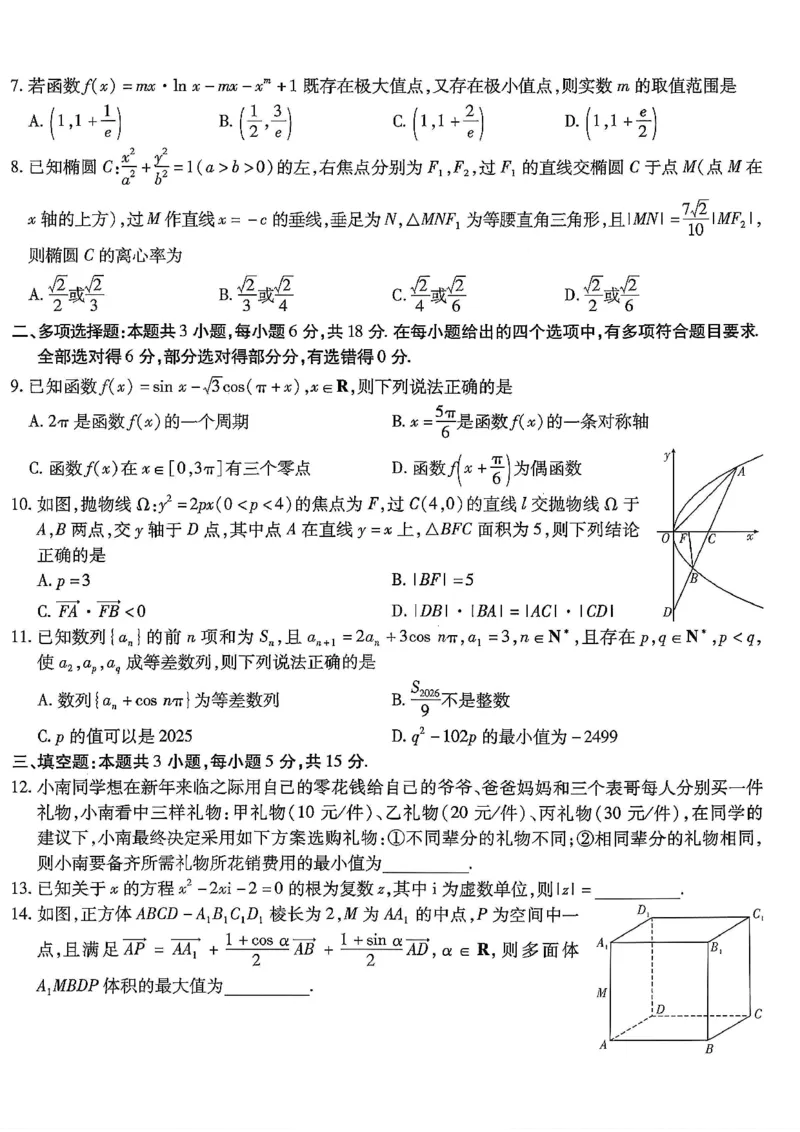 7. 若函数f(x)=mx·ln x-mx-x^m+1既存在极大值点,又存在极小值点,则实数 m 的取值范围是
A. (1,1+1/e) B. (1/2,3/e) C. (1,1+2/e) D. (1,1+e/2)
8. 已知椭圆 C:x²/a²+y²/b²=1(a>b>0)的左,右焦点分别为 F₁,F₂,过 F₁ 的直线交椭圆 C 于点 M(点 M 在
x 轴的上方),过 M 作直线 x=-c 的垂线,垂足为 N,△MNF₁ 为等腰直角三角形,且|MN|=7√2/10|MF₂|,
则椭圆 C 的离心率为
A. √2/2或√2/3 B. √2/3或√2/4 C. √2/4或√2/6 D. √2/2或√2/6
二、多项选择题:本题共 3 小题,每小题 6 分,共 18 分. 在每小题给出的四个选项中,有多项符合题目要求.
全部选对得 6 分,部分选对得部分分,有选错得 0 分.
9. 已知函数f(x)=sin x-√3cos(π+x),x∈R,则下列说法正确的是
A. 2π 是函数f(x)的一个周期 B. x=5π/6是函数f(x)的一条对称轴
C. 函数f(x)在 x∈[0,3π]有三个零点 D. 函数f(x+π/6)为偶函数
10. 如图,抛物线 Ω:y²=2px(0<p<4)的焦点为 F,过 C(4,0)的直线 l 交抛物线 Ω 于
A,B 两点,交 y 轴于 D 点,其中点 A 在直线 y=x 上,△BFC 面积为 5,则下列结论
正确的是
A. p=3 B. |BF|=5
C. FA→·FB→<0 D. |DB|·|BA|=|AC|·|CD|
y
A
O F C x
B
D
11. 已知数列{aₙ}的前 n 项和为 Sₙ,且 aₙ₊₁=2aₙ+3cos nπ,a₁=3,n∈N*,且存在 p,q∈N*,p<q,
使 a₂,a_p,a_q 成等差数列,则下列说法正确的是
A. 数列{aₙ+cos nπ}为等差数列 B. S₂₀₂₆/9不是整数
C. p 的值可以是 2025 D. q²-102p 的最小值为-2499
三、填空题:本题共 3 小题,每小题 5 分,共 15 分.
12. 小南同学想在新年来临之际用自己的零花钱给自己的爷爷、爸爸妈妈和三个表哥每人分别买一件
礼物,小南看中三样礼物:甲礼物(10 元/件)、乙礼物(20 元/件)、丙礼物(30 元/件),在同学的
建议下,小南最终决定采用如下方案选购礼物:①不同辈分的礼物不同;②相同辈分的礼物相同,
则小南要备齐所需礼物所花销费用的最小值为________.
13. 已知关于 x 的方程 x²-2xi-2=0 的根为复数 z,其中 i 为虚数单位,则|z|=________.
14. 如图,正方体 ABCD-A₁B₁C₁D₁ 棱长为 2,M 为 AA₁ 的中点,P 为空间中一
点,且满足AP→=AA₁→+(1+cos α)/2 AB→+(1+sin α)/2 AD→,α∈R,则多面体
A₁MBDP 体积的最大值为________.
D₁ C₁
A₁ B₁
M
D C
A B